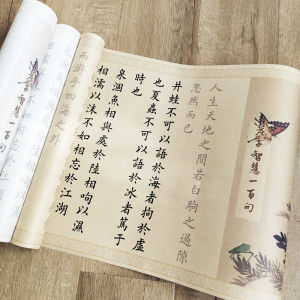 智慧一百句
人生天地之間若白駒之過隙
忽然而已
井蛙不可以語於海者拘於虛
也夏蟲不可以語於冰者篤于
時也
泉涸魚相與處於陸相呴以濕
相濡以沫不如相忘於江湖
而游乎四海之外
智慧一百句